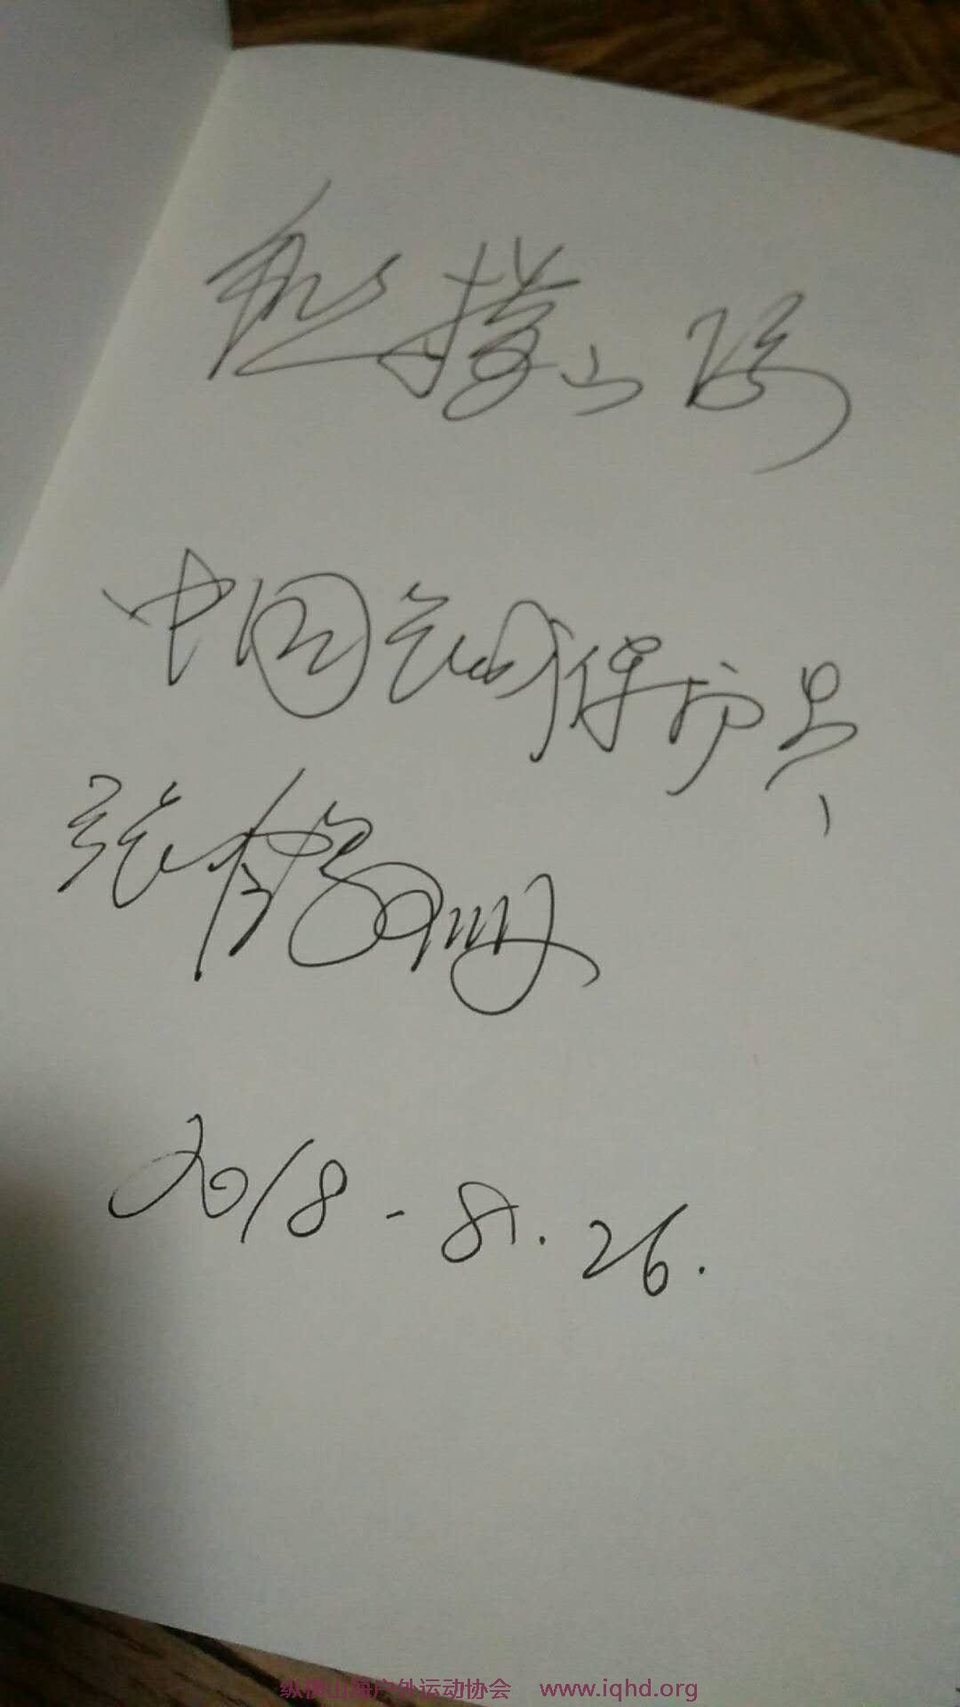 纵横山海
中国长城保护员
张鹤珊
2018-8.26.
纵横山海户外运动协会 www.iqhd.org